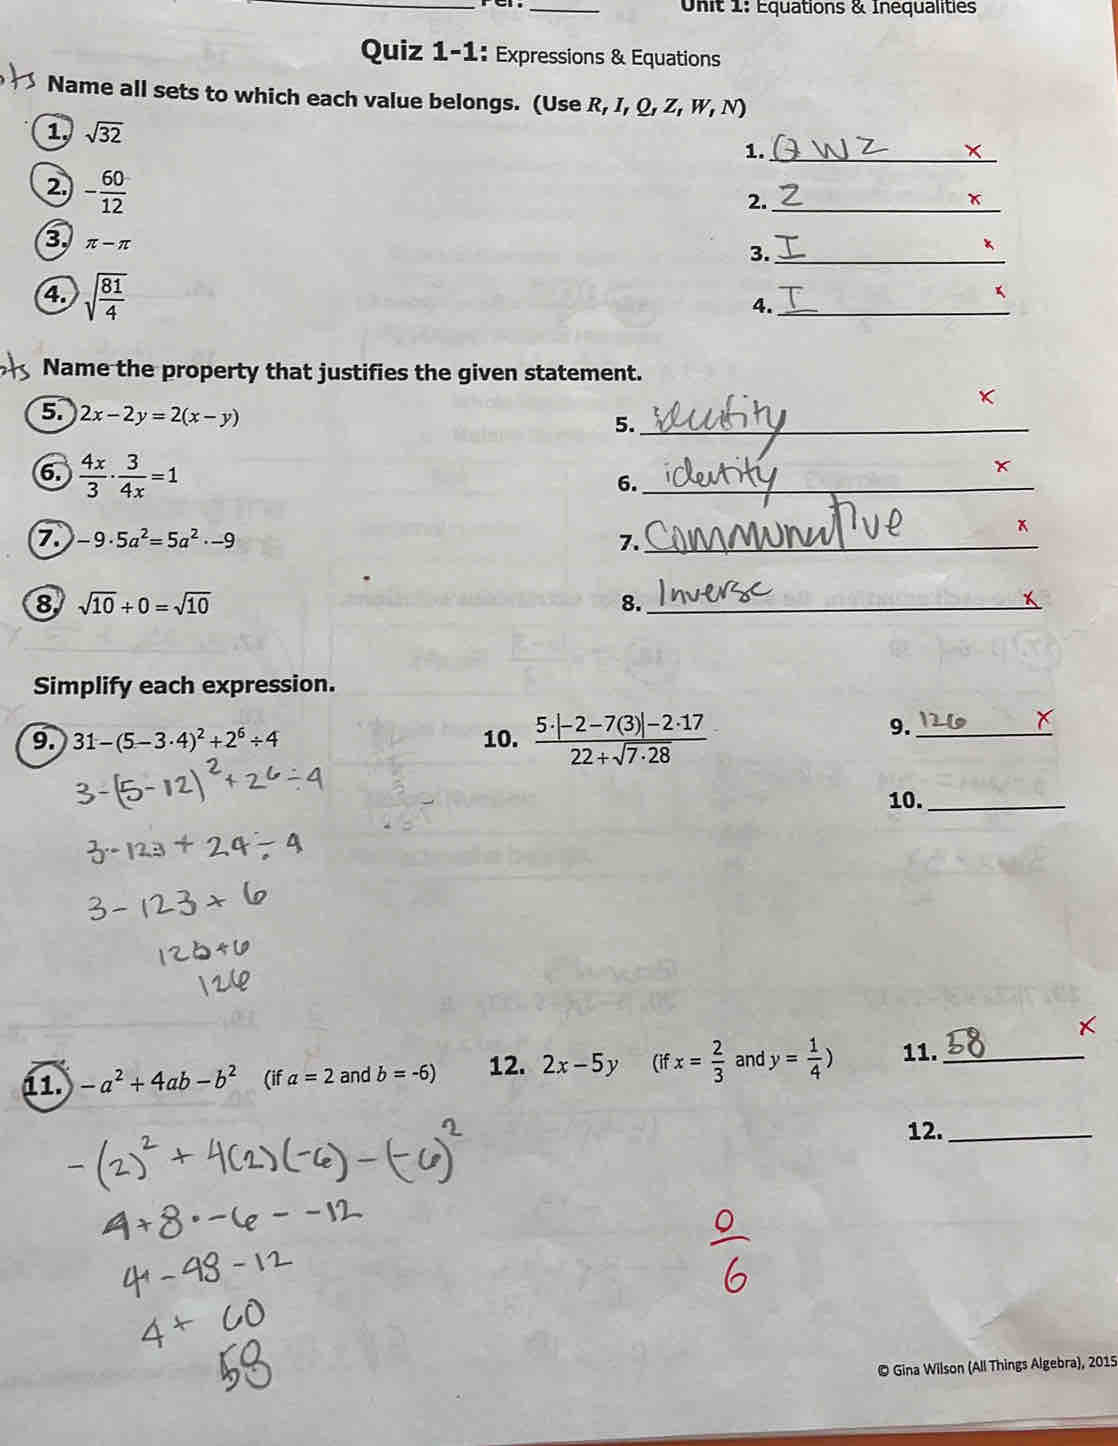 Unit 1: Equations & Inequalities
Quiz 1-1: Expressions & Equations
Name all sets to which each value belongs. (Use R, I, Q, Z, W, N)
1. √32
1. Q W Z ×
2. -60/12
2. Z ×
3. π - π
3. I ×
4. √(81/4)
4. I ×
pts Name the property that justifies the given statement.
5. 2x - 2y = 2(x - y)
5. identity ×
6. 4x/3 · 3/4x = 1
6. identity ×
7. -9 · 5a² = 5a² · -9
7. ×
8. √10 + 0 = √10
8. Inverse ×
Simplify each expression.
9. 31 - (5 - 3·4)² + 2⁶ ÷ 4
10. (5·|-2 - 7(3)| - 2·17)/(22 + √(7·28))
9. 126 ×
10.
3-(5-12)² + 26 ÷ 4
3-123 + 24 ÷ 4
3-123 + 6
+6
126
11. -a² + 4ab - b² (if a = 2 and b = -6)
12. 2x - 5y (if x = 2/3 and y = 1/4)
11. 58 ×
12.
-(2)² + 4(2)(-6) - (-6)²
4+8·-6 - -12
4-48-12
4+ 60
58
0/6
© Gina Wilson (All Things Algebra), 2015